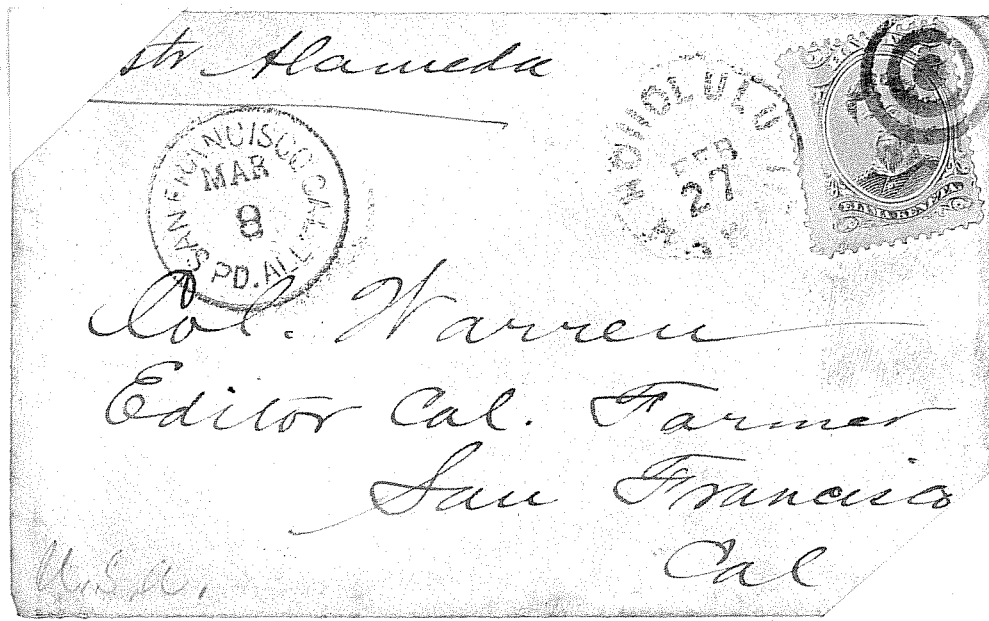 str Alameda
SAN FRANCISCO CAL.
MAR
8
PD. ALL
HONOLULU
FEB
27
Col. Warren
Editor Cal. Farmer
San Francisco
Cal
U.S.A.